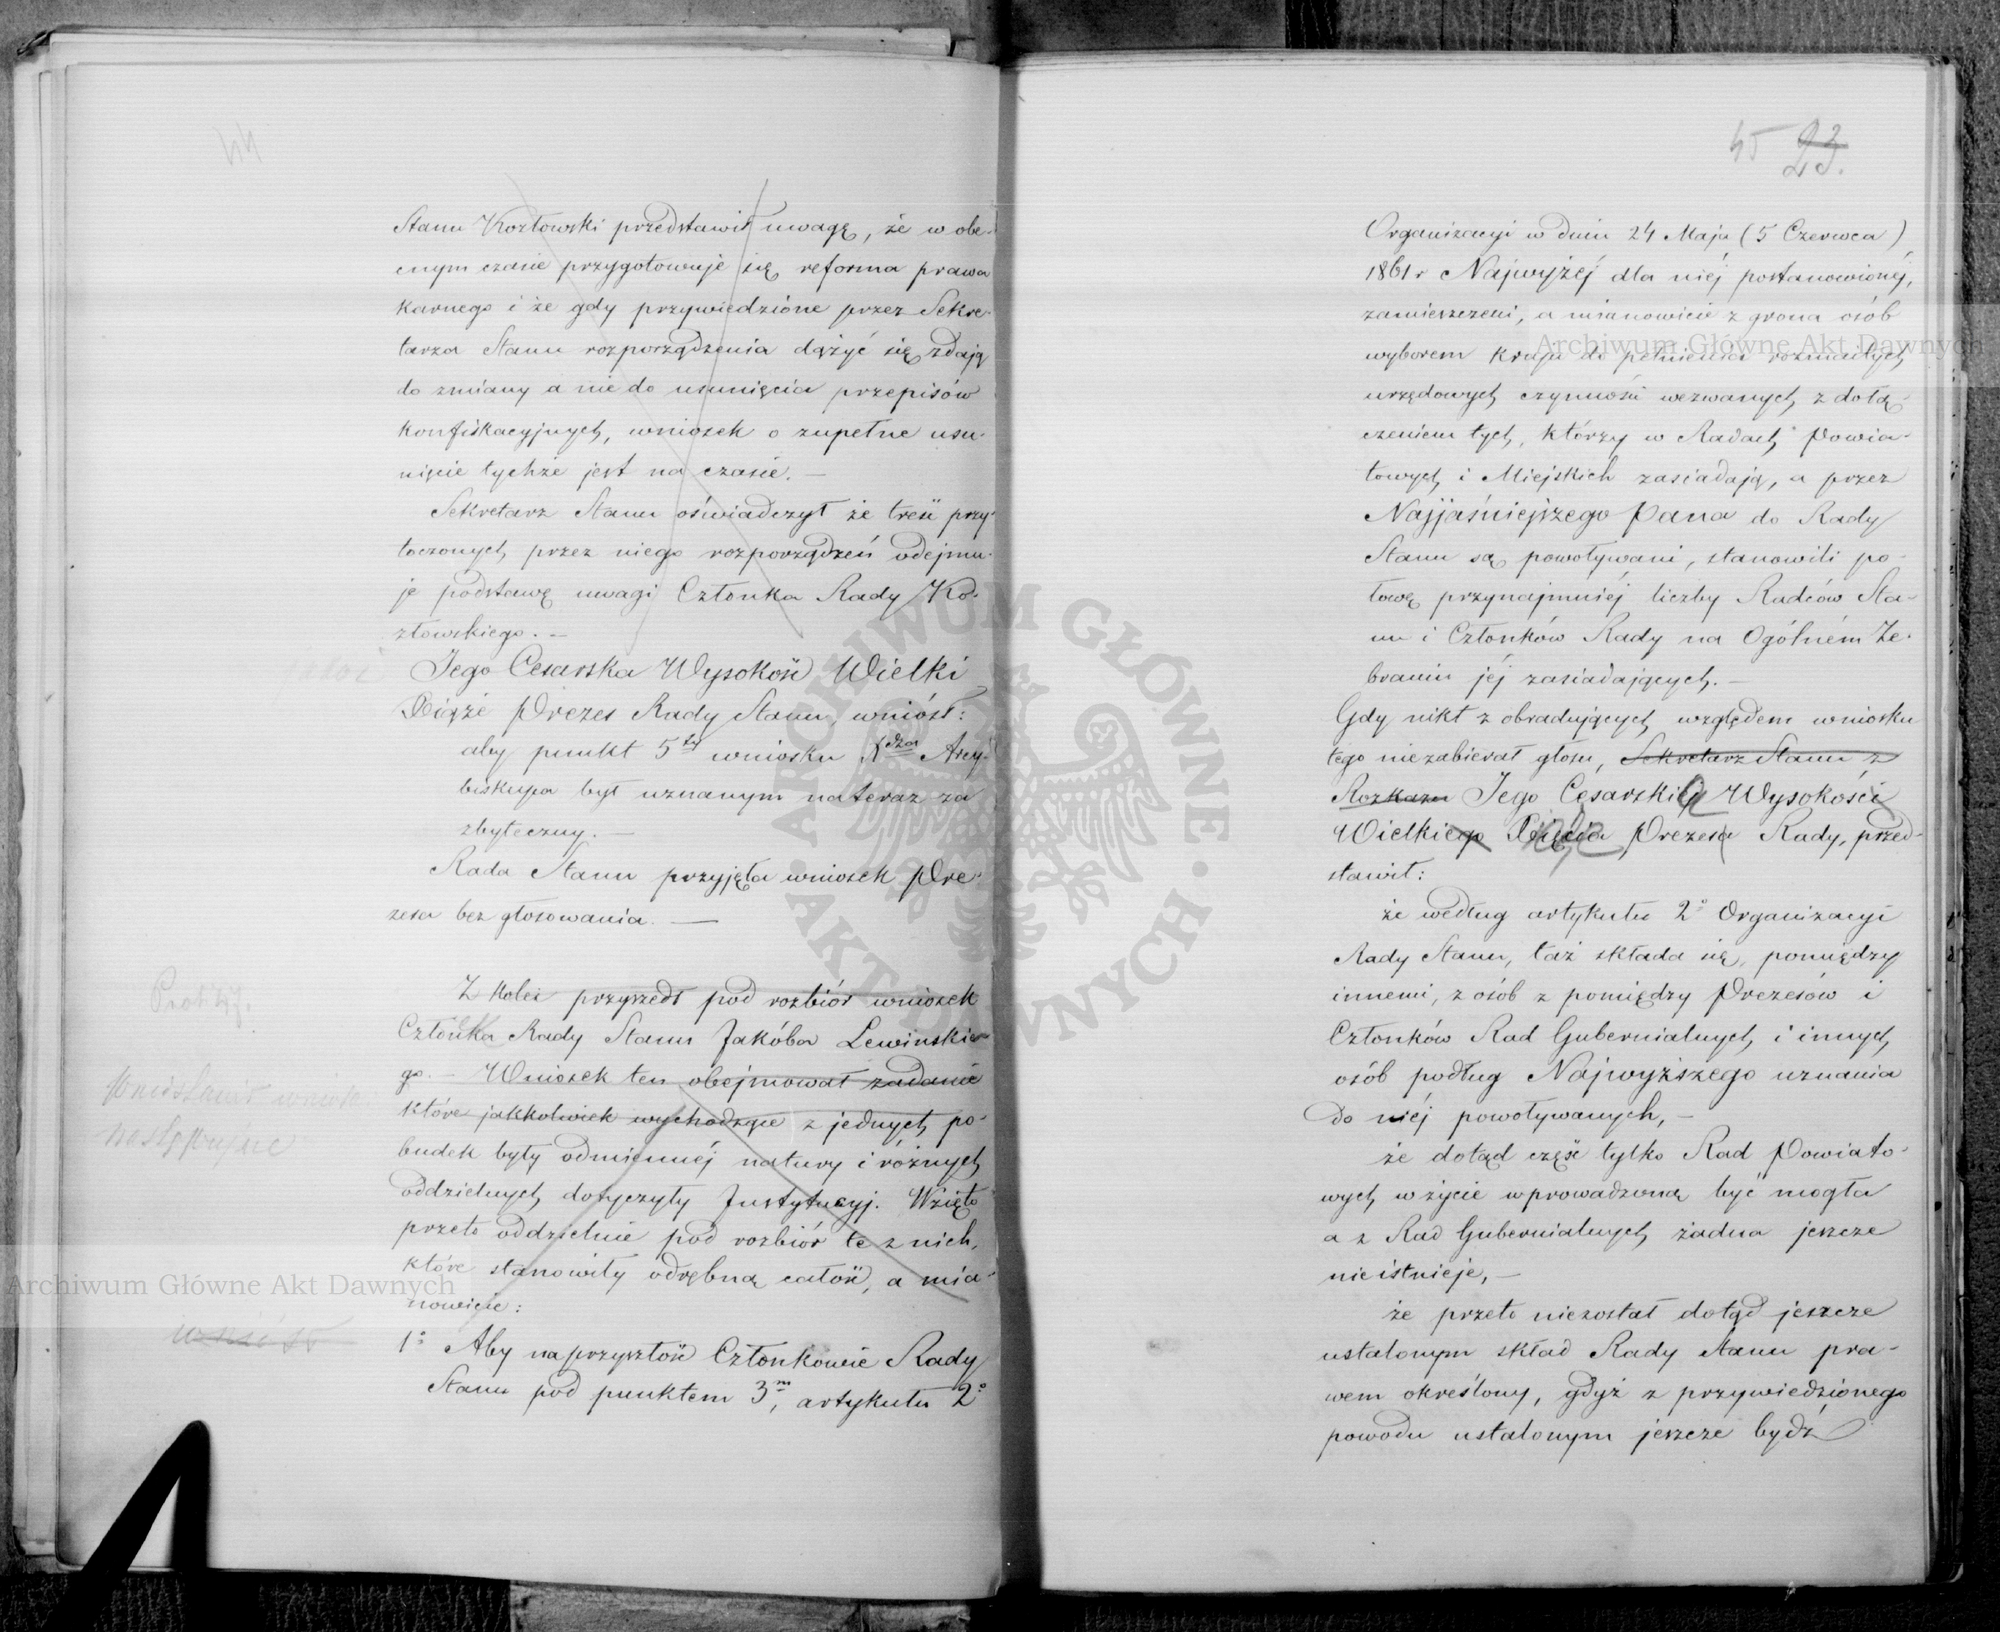 44
Stanu Kozłowski przedstawił uwagę, że w obe-
cnym czasie przygotowuje się reforma prawa
karnego i że gdy przywiedzione przez Sekre-
tarza Stanu rozporządzenia dążyć się zdają
do zmiany a nie do usunięcia przepisów
konfiskacyjnych, wniosek o zupełne usu-
nięcie tychże jest na czasie. —
Sekretarz Stanu oświadczył że treść przy-
toczonych przez niego rozporządzeń odejmu-
je podstawę uwagi Członka Rady Ko-
złowskiego. —
Jego Cesarska Wysokość Wielki
Xiąże Prezes Rady Stanu, wniósł:
aby punkt 5ty wniosku Xdza Arcy-
biskupa był uznanym na teraz za
zbyteczny. —
Rada Stanu przyjęła wniosek Pre-
zesa bez głosowania. —
Z kolei przyszedł pod rozbiór wniosek
Członka Rady Stanu Jakóba Lewinskie-
go. — Wniosek ten obejmował zadanie
które jakkolwiek wychodzące z jednych po-
budek były odmiennéj natury i różnych
oddzielnych dotyczyły Instytucyj. Wzięto
przeto oddzielnie pod rozbiór te z nich,
które stanowiły odrębną całość, a mia-
nowicie:
1° Aby na przyszłość Członkowie Rady
Stanu pod punktem 3m, artykułu 2°
następujące
wniósł
45 23.
Organizacyi w dniu 24 Maja (5 Czerwca)
1861 r Najwyżéj dla niéj postanowionéj,
zamieszczeni, a mianowicie z grona osób
wyborem kraju do pełnienia rozmaitych
urzędowych czynności wezwanych z dołą-
czeniem tych, którzy w Radach Powia-
towych i Miejskich zasiadają, a przez
Najjaśniejszego Pana do Rady
Stanu są powoływani, stanowili po-
łowę przynajmniéj liczby Radców Sta-
nu i Członków Rady na Ogólném Ze-
braniu jéj zasiadających. —
Gdy nikt z obradujących względem wniosku
tego niezabierał głosu, Sekretarz Stanu z
Rozkazu Jego Cesarskiéj Wysokości
Wielkiego Xięcia Prezesa Rady, przed-
stawił:
że według artykułu 2° Organizacyi
Rady Stanu, taż składa się, pomiędzy
innemi, z osób z pomiędzy Prezesów i
Członków Rad Gubernialnych i innych
osób podług Najwyższego uznania
do niéj powoływanych, —
że dotąd część tylko Rad Powiato-
wych w życie wprowadzoną być mogła
a z Rad Gubernialnych żadna jeszcze
nieistnieje, —
że przeto niezostał dotąd jeszcze
ustalonym skład Rady Stanu pra-
wem określony, gdyż z przywiedzionego
powodu ustalonym jeszcze bydź
Archiwum Główne Akt Dawnych
Archiwum Główne Akt Dawnych
ARCHIWUM GŁÓWNE AKT DAWNYCH